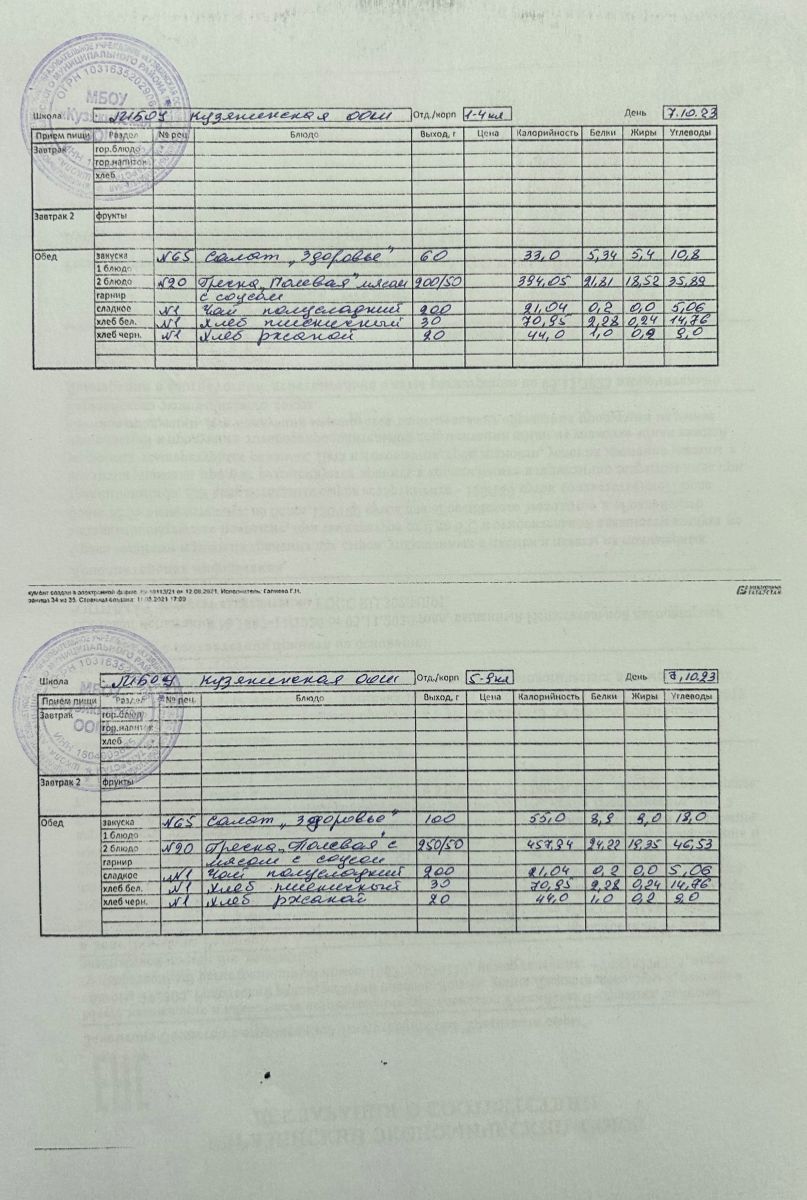 Школа МБОУ Кузякинская ООШ Отд./корп 1-4 кл День 7.10.23
Прием пищи Раздел № рец. Блюдо Выход, г Цена Калорийность Белки Жиры Углеводы
Завтрак гор.блюдо
гор.напиток
хлеб
Завтрак 2 фрукты
Обед закуска №65 Салат „Здоровье" 60 33,0 5,34 5,4 10,8
1 блюдо
2 блюдо №20 Гречка „Полевая" мясом 200/50 394,05 21,81 18,52 35,89
гарнир с соусом
сладкое №1 Чай полусладкий 200 21,04 0,2 0,0 5,06
хлеб бел. №1 Хлеб пшеничный 30 70,95 2,28 0,24 14,76
хлеб черн. №1 Хлеб ржаной 20 44,0 1,0 0,2 9,0
кумент создан в электронной форме. 12.08.2021. Исполнитель: Галиева Г.Н.
раница 34 из 35. Страница создана: 11.08.2021 17:09
ЭЛЕКТРОННЫЙ ТАТАРСТАН
Школа МБОУ Кузякинская ООШ Отд./корп 5-9 кл День 7.10.23
Прием пищи Раздел № рец. Блюдо Выход, г Цена Калорийность Белки Жиры Углеводы
Завтрак гор.блюдо
гор.напиток
хлеб
Завтрак 2 фрукты
Обед закуска №65 Салат „Здоровье" 100 55,0 8,9 9,0 18,0
1 блюдо
2 блюдо №20 Гречка „Полевая" с 250/50 457,94 24,22 19,35 46,53
гарнир мясом с соусом
сладкое №1 Чай полусладкий 200 21,04 0,2 0,0 5,06
хлеб бел. №1 Хлеб пшеничный 30 70,95 2,28 0,24 14,76
хлеб черн. №1 Хлеб ржаной 20 44,0 1,0 0,2 9,0